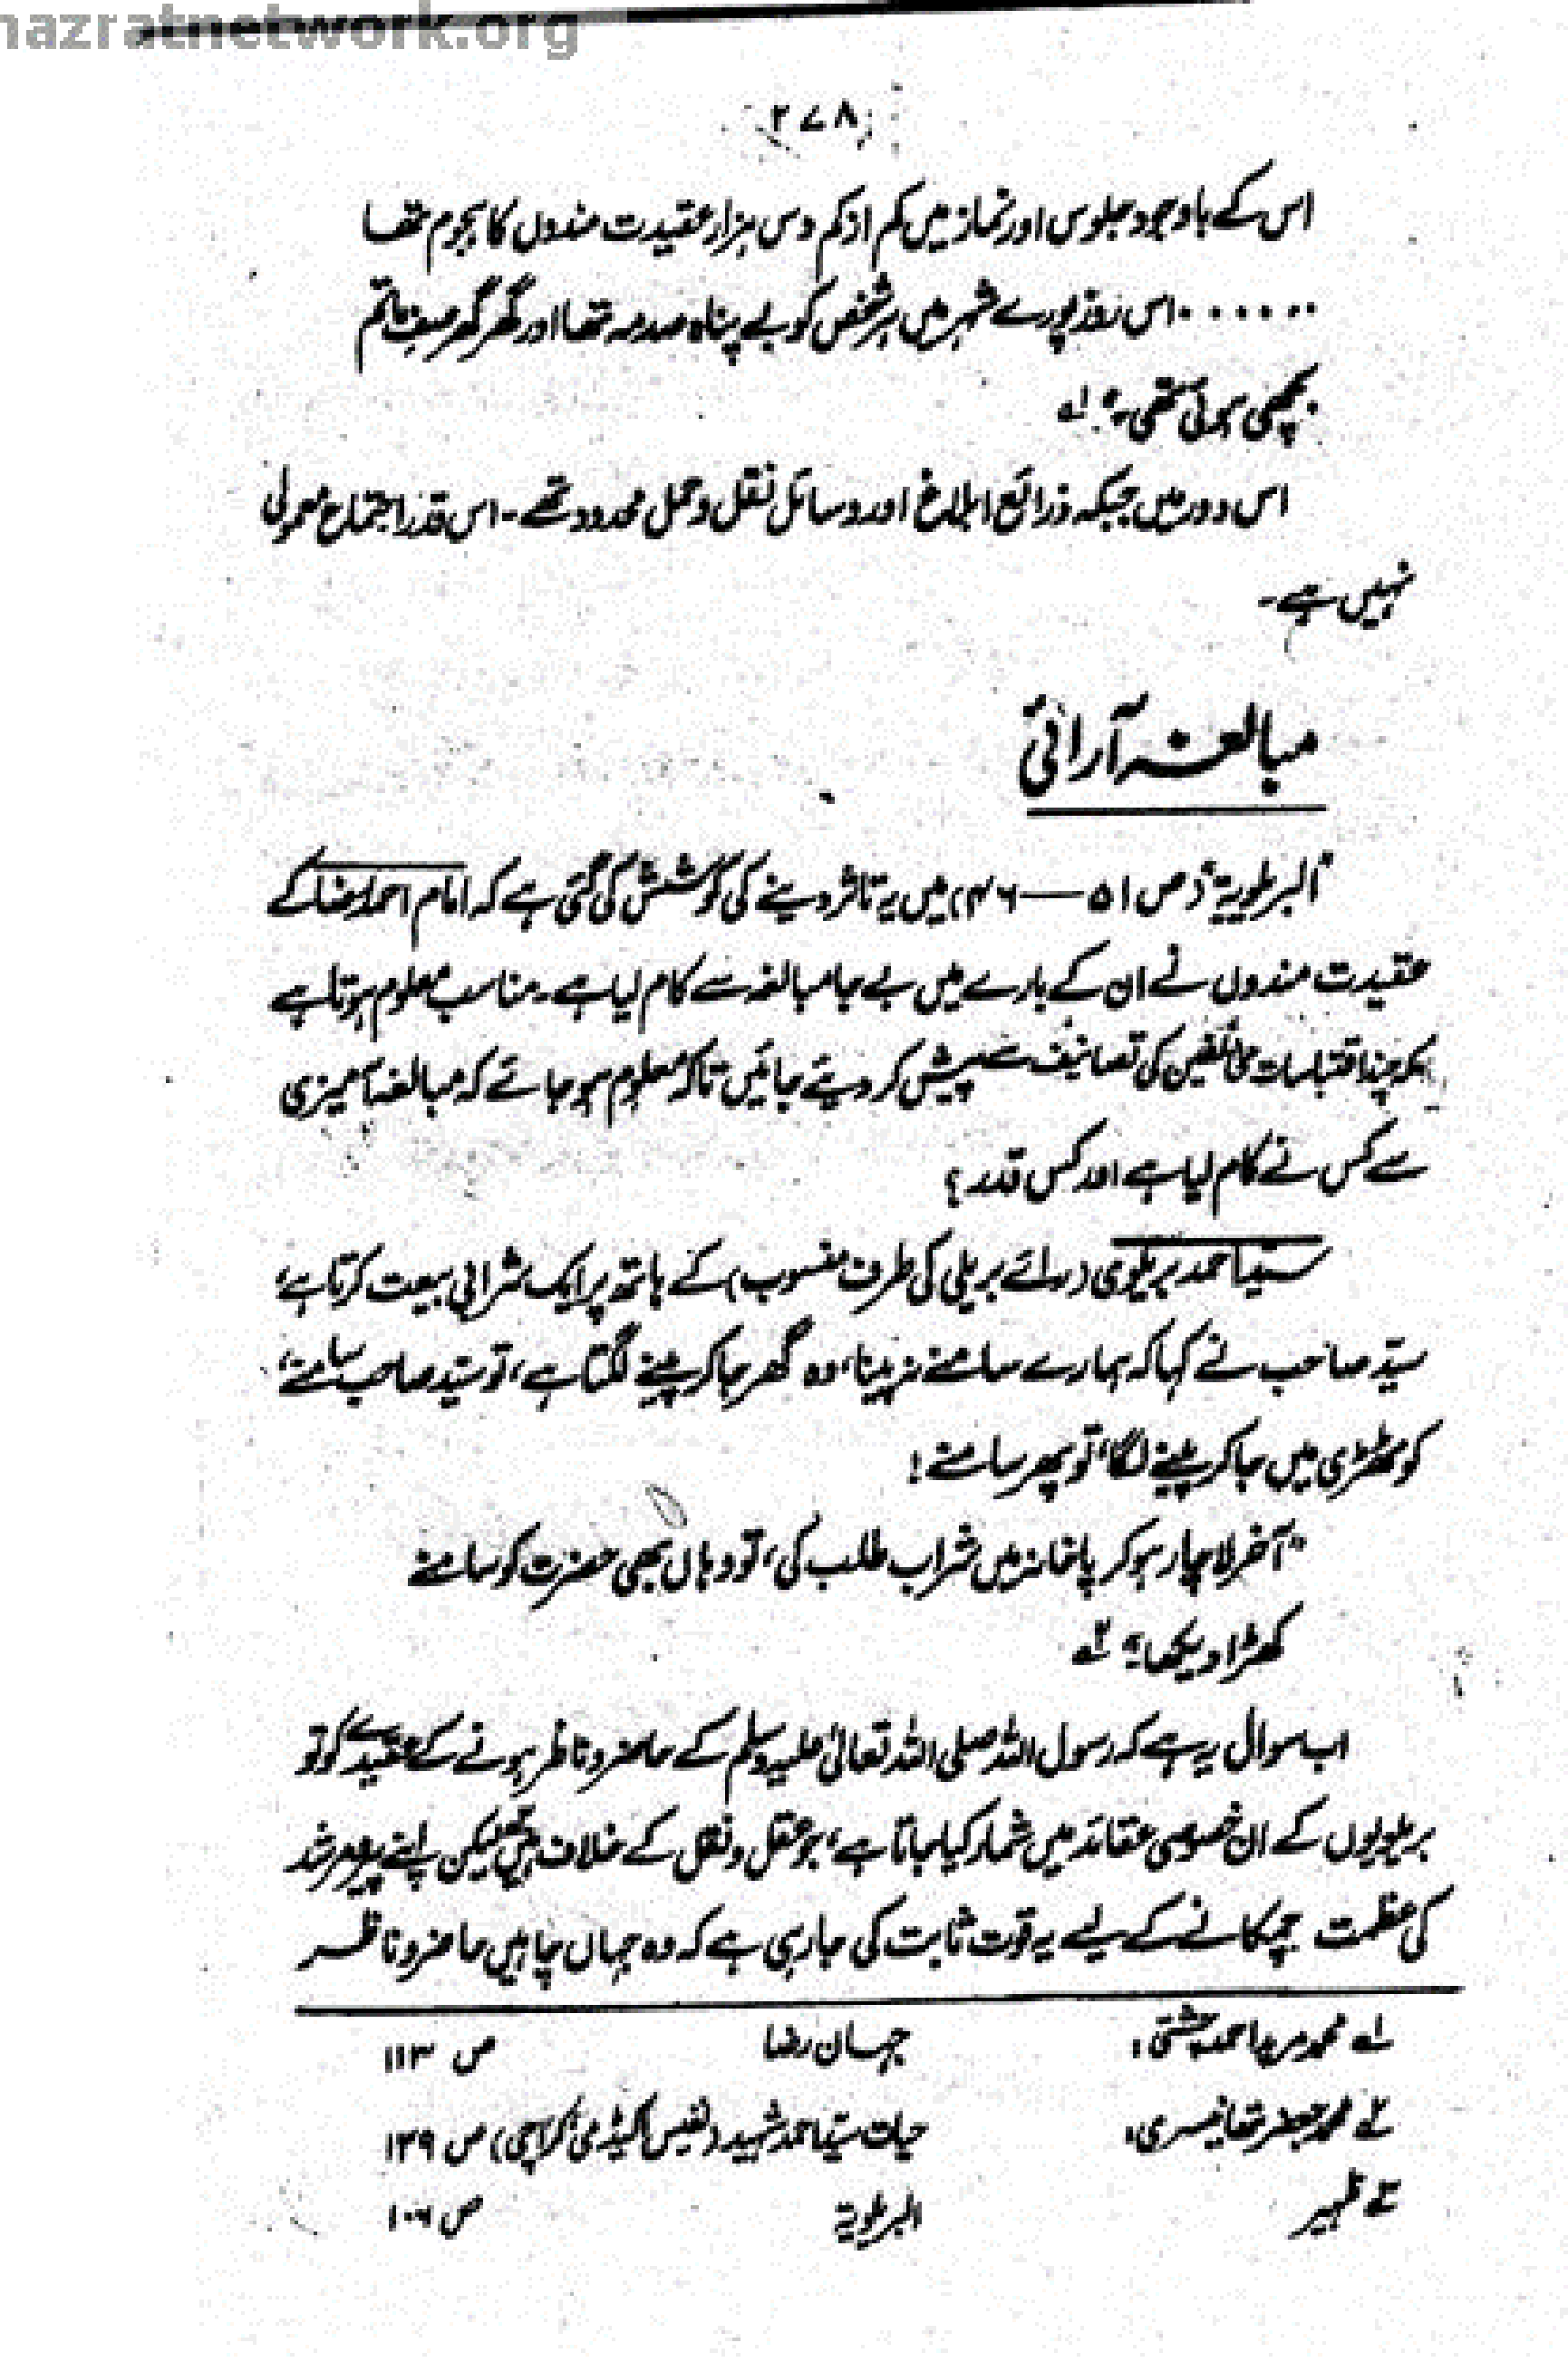 hazratnetwork.org
۲۷۸
اس کے باوجود جلوس اور نماز میں کم از کم دس ہزار عقیدت مندوں کا ہجوم تھا
۰۰۰۰۰۰ اس روز پورے شہر میں ہر شخص کو بے پناہ صدمہ تھا اور گھر گھر صفِ ماتم
بچھی ہوئی تھی۔" لے
اس دور میں جبکہ ذرائع ابلاغ اور وسائل نقل و حمل محدود تھے۔ اس قدر اجتماع معمولی
نہیں ہے۔
مبالغہ آرائی
"البریلویۃ" (ص ۵۱—۴۶) میں یہ تاثر دینے کی کوشش کی گئی ہے کہ امام احمد رضا کے
عقیدت مندوں نے ان کے بارے میں بے جا مبالغہ سے کام لیا ہے۔ مناسب معلوم ہوتا ہے
کہ چند اقتباسات مخالفین کی تصانیف سے پیش کر دیئے جائیں تاکہ معلوم ہو جائے کہ مبالغہ آمیزی
سے کس نے کام لیا ہے اور کس قدر؟
سید احمد بریلوی (رائے بریلی کی طرف منسوب) کے ہاتھ پر ایک شرابی بیعت کرتا ہے،
سیّد صاحب نے کہا کہ ہمارے سامنے نہ پینا، وہ گھر جا کر پینے لگتا ہے، تو سیّد صاحب سامنے،
کوٹھڑی میں جا کر پینے لگا، تو پھر سامنے!
"آخر لاچار ہو کر پاخانہ میں شراب طلب کی، تو وہاں بھی حضرت کو سامنے
کھڑا دیکھا۔" ٢ے
اب سوال یہ ہے کہ رسول اللہ صلی اللہ تعالیٰ علیہ وسلم کے حاضر و ناظر ہونے کے عقیدے کو تو
بریلویوں کے ان خصوصی عقائد میں شمار کیا جاتا ہے، جو عقل و نقل کے خلاف ہیں ٣ے لیکن اپنے پیر و مرشد
کی عظمت چمکانے کے لیے یہ قوت ثابت کی جا رہی ہے کہ وہ جہاں چاہیں حاضر و ناظر
لے محمد مرید احمد چشتی: جہان رضا ص ۱۱۳
٢ے محمد جعفر تھانیسری: حیات سیّد احمد شہید (نفیس اکیڈمی کراچی) ص ۱۳۹
٣ے ظہیر البریلویۃ ص ۱۰۶